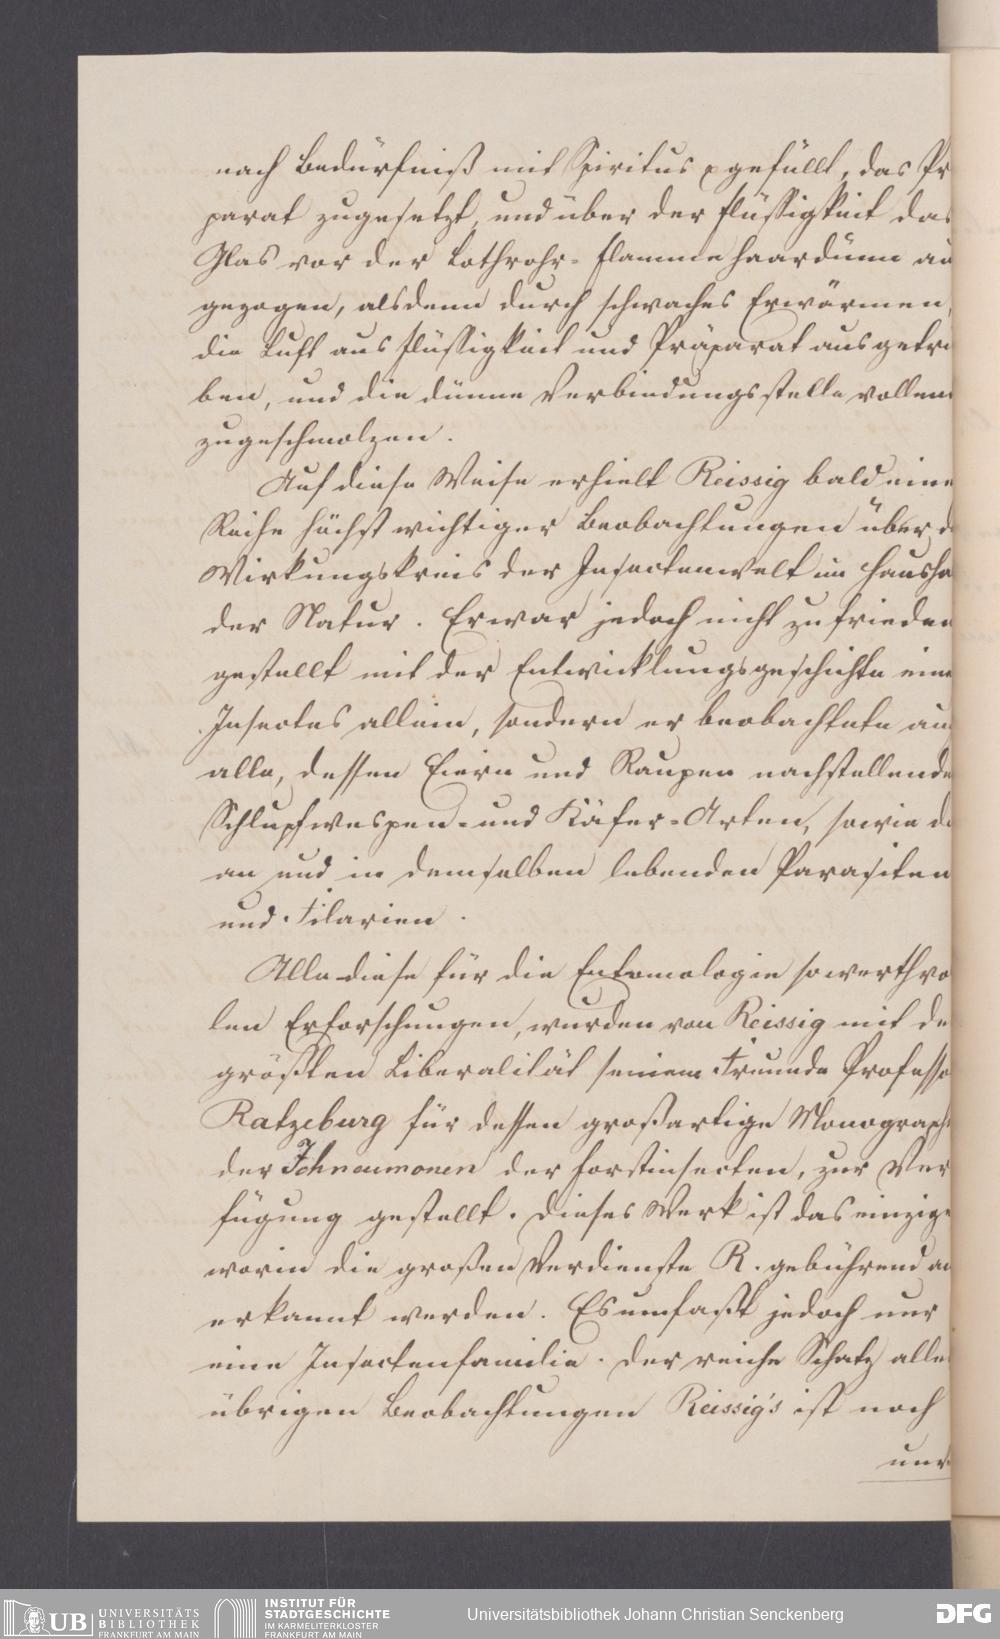 nach Bedürfniß mit Spiritus gefüllt, das Pr
parat zugesetzt, und über der Flüssigkeit das
Glas vor der Lothrohr-Flamme haardünn au
gezogen, alsdenn durch schwaches Erwärmen,
die Luft aus Flüssigkeit und Präparat ausgetri
ben, und die dünne Verbindungsstelle vollen
zugeschmolzen.
Auf diese Weise erhielt Reissig bald eine
Reihe höchst wichtiger Beobachtungen über d
Wirkungskreis der Insectenwelt im Hausha
der Natur. Er war jedoch nicht zufrieden
gestellt mit der Entwicklungsgeschichte eine
Insectes allein, sondern er beobachtete au
alle, dessen Eiern und Raupen nachstellende
Schlupfwespen- und Käfer-Arten, sowie d
an und in demselben lebenden Parasiten
und Filarien.
Alle diese für die Entomologie so werthvo
len Erforschungen, wurden von Reissig mit de
größten Liberalität seinem Freunde Professo
Ratzeburg für dessen großartige Monograph
der Ichneumonen der Forstinsecten, zur Ver
fügung gestellt. Dieses Werk ist das einzige
worin die großen Verdienste R. gebührend an
erkannt werden. Es umfaßt jedoch nur
eine Insectenfamilie. Der reiche Schatz aller
übrigen Beobachtungen Reissig's ist noch
unv
UB UNIVERSITÄTS
BIBLIOTHEK
FRANKFURT AM MAIN
INSTITUT FÜR
STADTGESCHICHTE
IM KARMELITERKLOSTER
FRANKFURT AM MAIN
Universitätsbibliothek Johann Christian Senckenberg
DFG